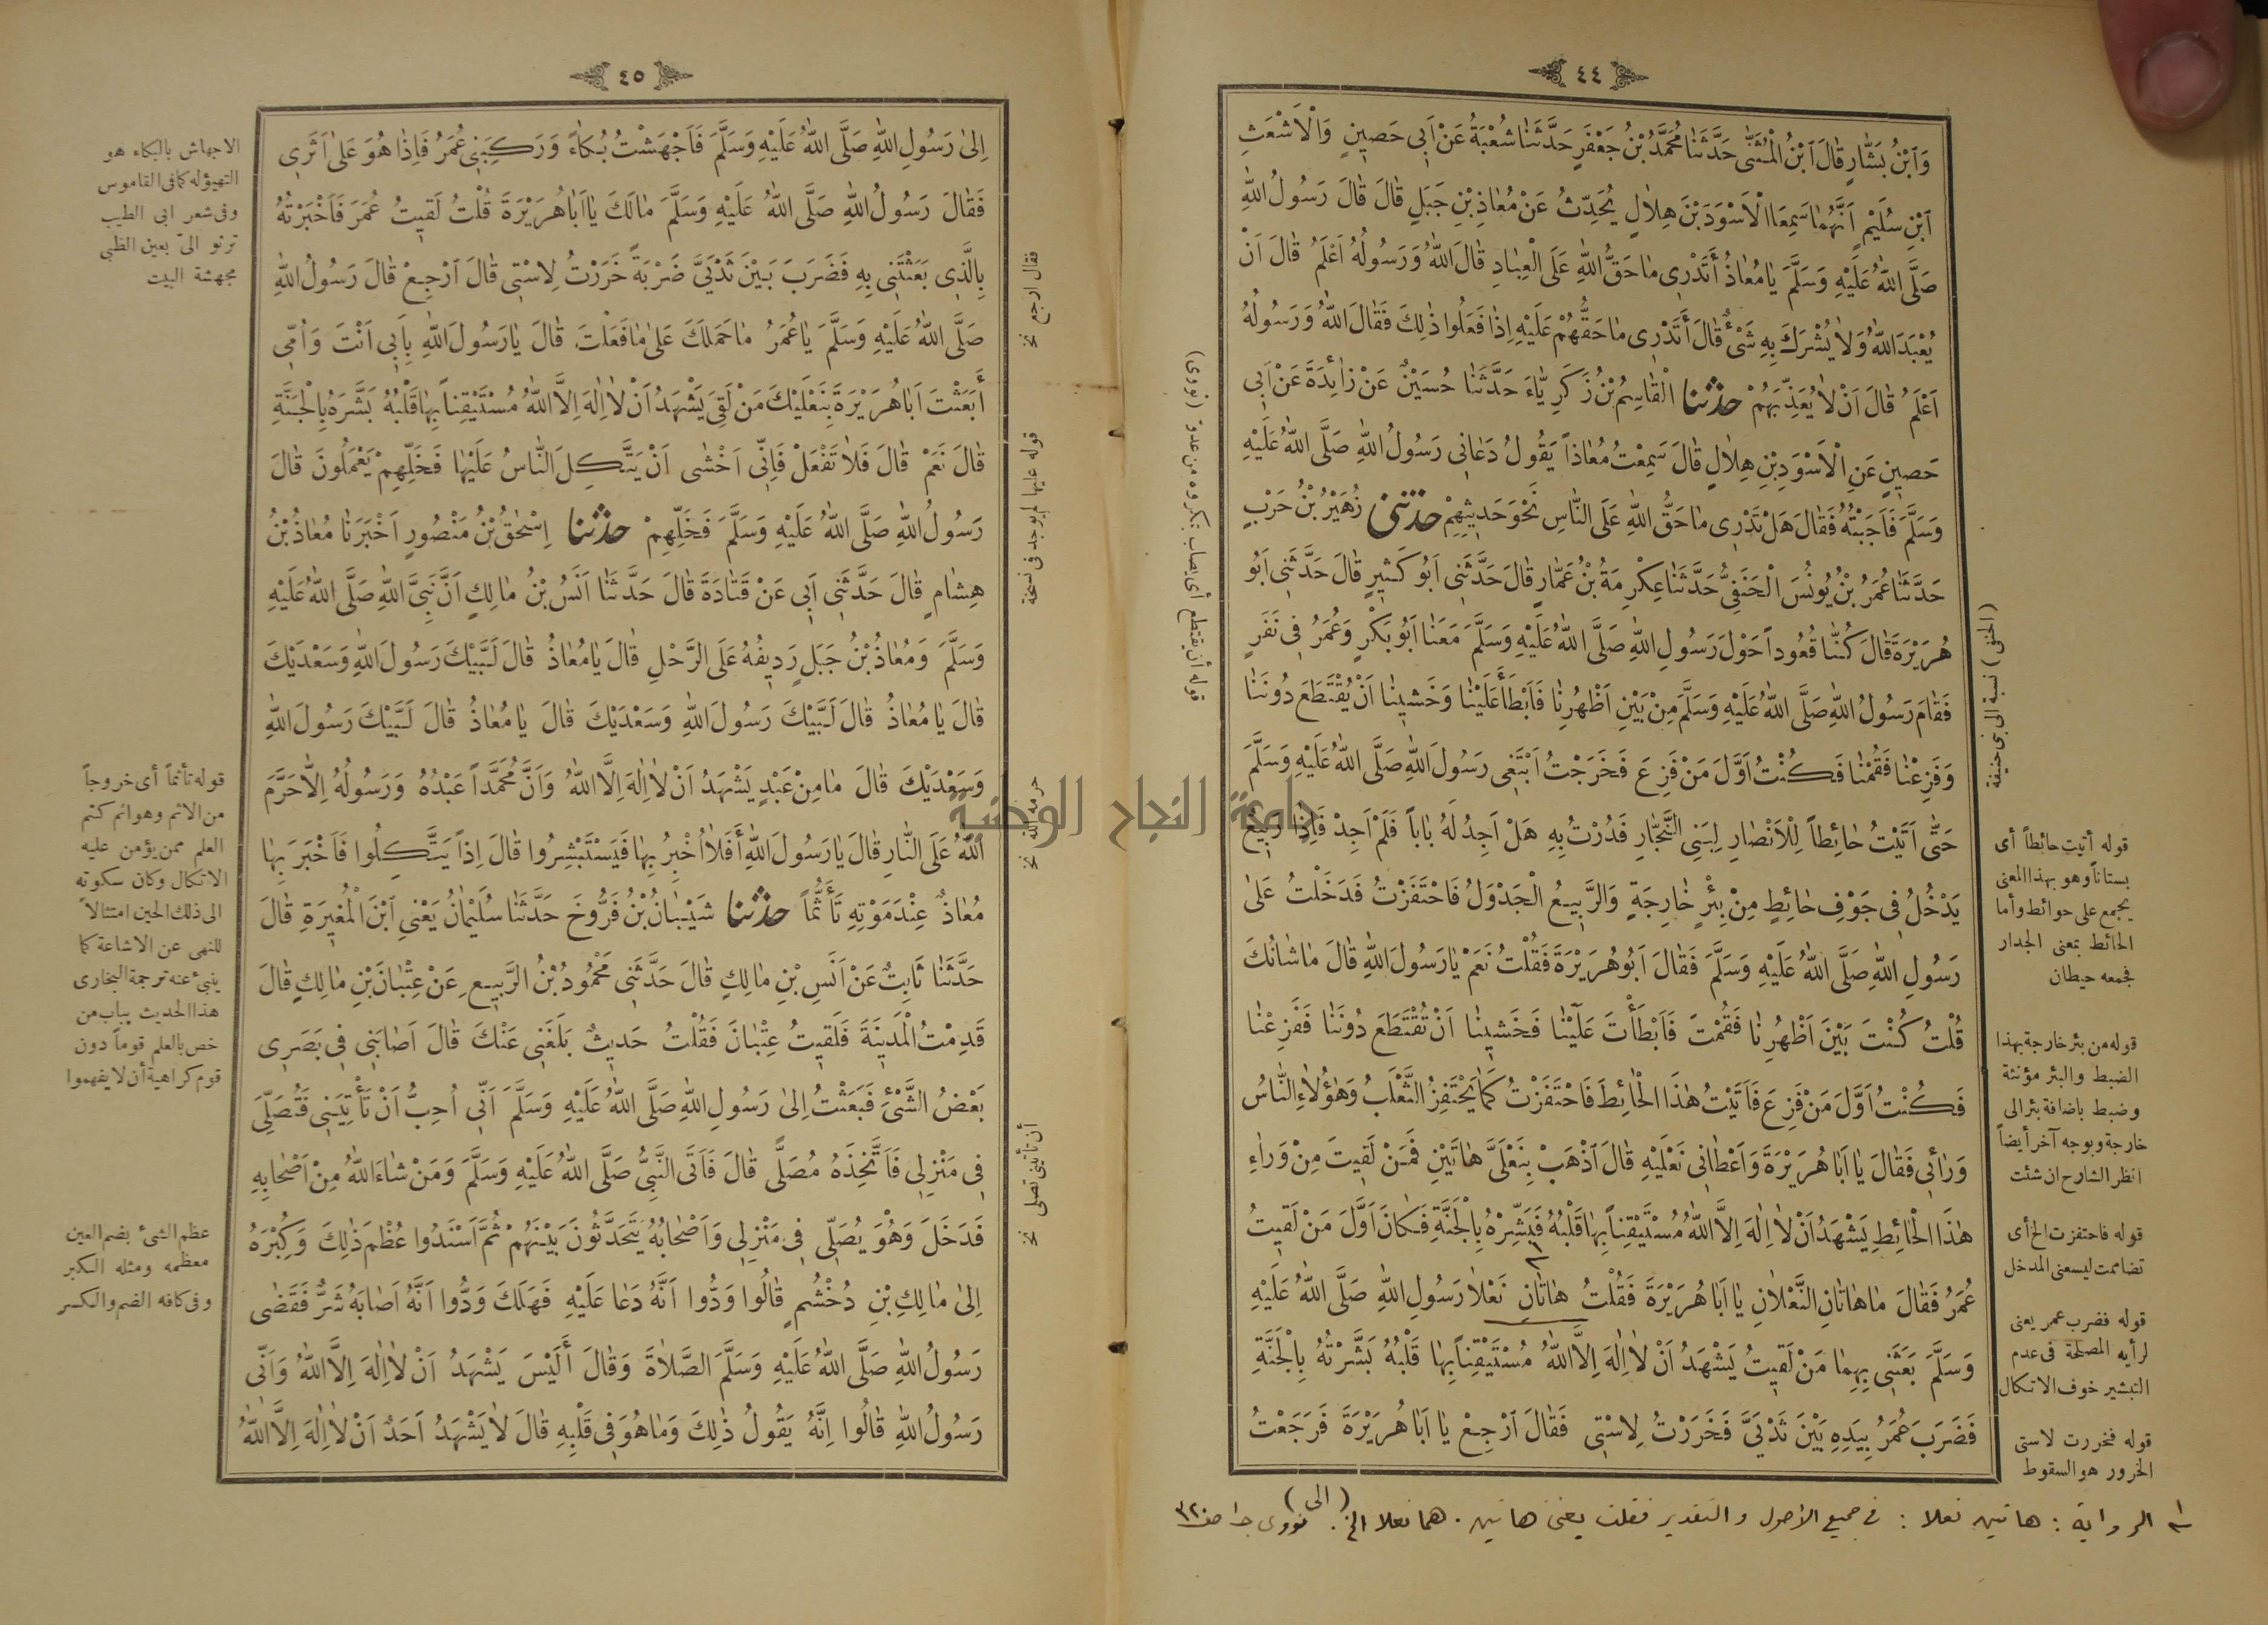 ٤٤
وَٱبْنُ بَشَّارٍ قَالَ ٱبْنُ الْمُثَنَّى حَدَّثَنَا مُحَمَّدُ بْنُ جَعْفَرٍ حَدَّثَنَا شُعْبَةُ عَنْ اَبِى حَصِينٍ وَالْاَشْعَثِ
ٱبْنِ سُلَيْمٍ اَنَّهُمَا سَمِعَا الْاَسْوَدَ بْنَ هِلَالٍ يُحَدِّثُ عَنْ مُعَاذِ بْنِ جَبَلٍ قَالَ قَالَ رَسُولُ اللّٰهِ
صَلَّى اللّٰهُ عَلَيْهِ وَسَلَّمَ يَا مُعَاذُ أَتَدْرِى مَا حَقُّ اللّٰهِ عَلَى الْعِبَادِ قَالَ اللّٰهُ وَرَسُولُهُ اَعْلَمُ قَالَ اَنْ
يُعْبَدَ اللّٰهُ وَلَا يُشْرَكَ بِهِ شَىْءٌ قَالَ أَتَدْرِى مَا حَقُّهُمْ عَلَيْهِ اِذَا فَعَلُوا ذٰلِكَ فَقَالَ اللّٰهُ وَرَسُولُهُ
اَعْلَمُ قَالَ اَنْ لَا يُعَذِّبَهُمْ حدثنا الْقَاسِمُ بْنُ زَكَرِيَّاءَ حَدَّثَنَا حُسَيْنٌ عَنْ زَائِدَةَ عَنْ اَبِى
حَصِينٍ عَنِ الْاَسْوَدِ بْنِ هِلَالٍ قَالَ سَمِعْتُ مُعَاذاً يَقُولُ دَعَانِى رَسُولُ اللّٰهِ صَلَّى اللّٰهُ عَلَيْهِ
وَسَلَّمَ فَاَجَبْتُهُ فَقَالَ هَلْ تَدْرِى مَا حَقُّ اللّٰهِ عَلَى النَّاسِ نَحْوَ حَدِيثِهِمْ حدثنى زُهَيْرُ بْنُ حَرْبٍ
حَدَّثَنَا عُمَرُ بْنُ يُونُسَ الْحَنَفِىُّ حَدَّثَنَا عِكْرِمَةُ بْنُ عَمَّارٍ قَالَ حَدَّثَنِى اَبُو كَثِيرٍ قَالَ حَدَّثَنِى اَبُو
هُرَيْرَةَ قَالَ كُنَّا قُعُوداً حَوْلَ رَسُولِ اللّٰهِ صَلَّى اللّٰهُ عَلَيْهِ وَسَلَّمَ مَعَنَا اَبُو بَكْرٍ وَعُمَرُ فِى نَفَرٍ
فَقَامَ رَسُولُ اللّٰهِ صَلَّى اللّٰهُ عَلَيْهِ وَسَلَّمَ مِنْ بَيْنِ اَظْهُرِنَا فَاَبْطَأَ عَلَيْنَا وَخَشِينَا اَنْ يُقْتَطَعَ دُونَنَا
وَفَزِعْنَا فَقُمْنَا فَكُنْتُ اَوَّلَ مَنْ فَزِعَ فَخَرَجْتُ اَبْتَغِى رَسُولَ اللّٰهِ صَلَّى اللّٰهُ عَلَيْهِ وَسَلَّمَ
حَتّٰى اَتَيْتُ حَائِطاً لِلْاَنْصَارِ لِبَنِى النَّجَّارِ فَدُرْتُ بِهِ هَلْ اَجِدُ لَهُ بَاباً فَلَمْ اَجِدْ فَاِذَا رَبِيعٌ
يَدْخُلُ فِى جَوْفِ حَائِطٍ مِنْ بِئْرٍ خَارِجَةٍ وَالرَّبِيعُ الْجَدْوَلُ فَاحْتَفَزْتُ فَدَخَلْتُ عَلَى
رَسُولِ اللّٰهِ صَلَّى اللّٰهُ عَلَيْهِ وَسَلَّمَ فَقَالَ اَبُو هُرَيْرَةَ فَقُلْتُ نَعَمْ يَا رَسُولَ اللّٰهِ قَالَ مَا شَانُكَ
قُلْتُ كُنْتَ بَيْنَ اَظْهُرِنَا فَقُمْتَ فَاَبْطَأْتَ عَلَيْنَا فَخَشِينَا اَنْ تُقْتَطَعَ دُونَنَا فَفَزِعْنَا
فَكُنْتُ اَوَّلَ مَنْ فَزِعَ فَاَتَيْتُ هٰذَا الْحَائِطَ فَاحْتَفَزْتُ كَمَا يَحْتَفِزُ الثَّعْلَبُ وَهٰؤُلَاءِ النَّاسُ
وَرَائِى فَقَالَ يَا اَبَا هُرَيْرَةَ وَاَعْطَانِى نَعْلَيْهِ قَالَ ٱذْهَبْ بِنَعْلَىَّ هَاتَيْنِ فَمَنْ لَقِيتَ مِنْ وَرَاءِ
هٰذَا الْحَائِطِ يَشْهَدُ اَنْ لَا اِلٰهَ اِلَّا اللّٰهُ مُسْتَيْقِناً بِهَا قَلْبُهُ فَبَشِّرْهُ بِالْجَنَّةِ فَكَانَ اَوَّلَ مَنْ لَقِيتُ
عُمَرُ فَقَالَ مَا هَاتَانِ النَّعْلَانِ يَا اَبَا هُرَيْرَةَ فَقُلْتُ هَاتَانِ نَعْلَا رَسُولِ اللّٰهِ صَلَّى اللّٰهُ عَلَيْهِ
وَسَلَّمَ بَعَثَنِى بِهِمَا مَنْ لَقِيتُ يَشْهَدُ اَنْ لَا اِلٰهَ اِلَّا اللّٰهُ مُسْتَيْقِناً بِهَا قَلْبُهُ بَشَّرْتُهُ بِالْجَنَّةِ
فَضَرَبَ عُمَرُ بِيَدِهِ بَيْنَ ثَدْيَىَّ فَخَرَرْتُ لِاسْتِى فَقَالَ ٱرْجِعْ يَا اَبَا هُرَيْرَةَ فَرَجَعْتُ
(الحنفى) نسبة الى بنى حنيفة
قوله أتيت حائطاً أى
بستاناً وهو بهذا المعنى
يجمع على حوائط وأما
الحائط بمعنى الجدار
فجمعه حيطان
قوله من بئر خارجة بهذا
الضبط والبئر مؤنثة
وضبط باضافة بئر الى
خارجة وبوجه آخر أيضاً
انظر الشارح ان شئت
قوله فاحتفزت الخ أى
تضاممت ليسعنى المدخل
قوله فضرب عمر يعنى
لرأيه المصلحة فى عدم
التبشير خوف الاتكال
قوله فخررت لاستى
الخرور هو السقوط
قوله أن يقتطع أى يصاب بمكروه من عدو (نووى)
١ الرواية : هاتين نعلا : فى جميع الأصول والتقدير فقلت يعنى هاتين . هما نعلا الخ . (الى) نووى ج١ ص٣٢٠
٤٥
اِلَى رَسُولِ اللّٰهِ صَلَّى اللّٰهُ عَلَيْهِ وَسَلَّمَ فَاَجْهَشْتُ بُكَاءً وَرَكِبَنِى عُمَرُ فَاِذَا هُوَ عَلَى اَثَرِى
فَقَالَ رَسُولُ اللّٰهِ صَلَّى اللّٰهُ عَلَيْهِ وَسَلَّمَ مَا لَكَ يَا اَبَا هُرَيْرَةَ قُلْتُ لَقِيتُ عُمَرَ فَاَخْبَرْتُهُ
بِالَّذِى بَعَثْتَنِى بِهِ فَضَرَبَ بَيْنَ ثَدْيَىَّ ضَرْبَةً خَرَرْتُ لِاسْتِى قَالَ ٱرْجِعْ قَالَ رَسُولُ اللّٰهِ
صَلَّى اللّٰهُ عَلَيْهِ وَسَلَّمَ يَا عُمَرُ مَا حَمَلَكَ عَلَى مَا فَعَلْتَ قَالَ يَا رَسُولَ اللّٰهِ بِاَبِى اَنْتَ وَاُمِّى
أَبَعَثْتَ اَبَا هُرَيْرَةَ بِنَعْلَيْكَ مَنْ لَقِىَ يَشْهَدُ اَنْ لَا اِلٰهَ اِلَّا اللّٰهُ مُسْتَيْقِناً بِهَا قَلْبُهُ بَشَّرَهُ بِالْجَنَّةِ
قَالَ نَعَمْ قَالَ فَلَا تَفْعَلْ فَاِنِّى اَخْشَى اَنْ يَتَّكِلَ النَّاسُ عَلَيْهَا فَخَلِّهِمْ يَعْمَلُونَ قَالَ
رَسُولُ اللّٰهِ صَلَّى اللّٰهُ عَلَيْهِ وَسَلَّمَ فَخَلِّهِمْ حدثنا اِسْحٰقُ بْنُ مَنْصُورٍ اَخْبَرَنَا مُعَاذُ بْنُ
هِشَامٍ قَالَ حَدَّثَنِى اَبِى عَنْ قَتَادَةَ قَالَ حَدَّثَنَا اَنَسُ بْنُ مَالِكٍ اَنَّ نَبِىَّ اللّٰهِ صَلَّى اللّٰهُ عَلَيْهِ
وَسَلَّمَ وَمُعَاذُ بْنُ جَبَلٍ رَدِيفُهُ عَلَى الرَّحْلِ قَالَ يَا مُعَاذُ قَالَ لَبَّيْكَ رَسُولَ اللّٰهِ وَسَعْدَيْكَ
قَالَ يَا مُعَاذُ قَالَ لَبَّيْكَ رَسُولَ اللّٰهِ وَسَعْدَيْكَ قَالَ يَا مُعَاذُ قَالَ لَبَّيْكَ رَسُولَ اللّٰهِ
وَسَعْدَيْكَ قَالَ مَا مِنْ عَبْدٍ يَشْهَدُ اَنْ لَا اِلٰهَ اِلَّا اللّٰهُ وَاَنَّ مُحَمَّداً عَبْدُهُ وَرَسُولُهُ اِلَّا حَرَّمَ
اللّٰهُ عَلَى النَّارِ قَالَ يَا رَسُولَ اللّٰهِ أَفَلَا اُخْبِرُ بِهَا فَيَسْتَبْشِرُوا قَالَ اِذاً يَتَّكِلُوا فَاَخْبَرَ بِهَا
مُعَاذٌ عِنْدَ مَوْتِهِ تَأَثُّماً حدثنا شَيْبَانُ بْنُ فَرُّوخَ حَدَّثَنَا سُلَيْمَانُ يَعْنِى ٱبْنَ الْمُغِيرَةِ قَالَ
حَدَّثَنَا ثَابِتٌ عَنْ اَنَسِ بْنِ مَالِكٍ قَالَ حَدَّثَنِى مَحْمُودُ بْنُ الرَّبِيعِ عَنْ عِتْبَانَ بْنِ مَالِكٍ قَالَ
قَدِمْتُ الْمَدِينَةَ فَلَقِيتُ عِتْبَانَ فَقُلْتُ حَدِيثٌ بَلَغَنِى عَنْكَ قَالَ اَصَابَنِى فِى بَصَرِى
بَعْضُ الشَّىْءِ فَبَعَثْتُ اِلَى رَسُولِ اللّٰهِ صَلَّى اللّٰهُ عَلَيْهِ وَسَلَّمَ اَنِّى اُحِبُّ اَنْ تَأْتِيَنِى فَتُصَلِّىَ
فِى مَنْزِلِى فَاَتَّخِذَهُ مُصَلًّى قَالَ فَاَتَى النَّبِىُّ صَلَّى اللّٰهُ عَلَيْهِ وَسَلَّمَ وَمَنْ شَاءَ اللّٰهُ مِنْ اَصْحَابِهِ
فَدَخَلَ وَهُوَ يُصَلِّى فِى مَنْزِلِى وَاَصْحَابُهُ يَتَحَدَّثُونَ بَيْنَهُمْ ثُمَّ اَسْنَدُوا عُظْمَ ذٰلِكَ وَكِبْرَهُ
اِلَى مَالِكِ بْنِ دُخْشُمٍ قَالُوا وَدُّوا اَنَّهُ دَعَا عَلَيْهِ فَهَلَكَ وَدُّوا اَنَّهُ اَصَابَهُ شَرٌّ فَقَضَى
رَسُولُ اللّٰهِ صَلَّى اللّٰهُ عَلَيْهِ وَسَلَّمَ الصَّلَاةَ وَقَالَ أَلَيْسَ يَشْهَدُ اَنْ لَا اِلٰهَ اِلَّا اللّٰهُ وَاَنِّى
رَسُولُ اللّٰهِ قَالُوا اِنَّهُ يَقُولُ ذٰلِكَ وَمَا هُوَ فِى قَلْبِهِ قَالَ لَا يَشْهَدُ اَحَدٌ اَنْ لَا اِلٰهَ اِلَّا اللّٰهُ
فقال ارجع نخ
قوله عليها لم يوجد فى نسخة
حرمه الله نخ
أن تأتينى تصلى نخ
الاجهاش بالبكاء هو
التهيؤ له كما فى القاموس
وفى شعر ابى الطيب
ترنو الىّ بعين الظبى
مجهشة البيت
قوله تأثماً أى خروجاً
من الاثم وهو اثم كتم
العلم ممن يؤمن عليه
الاتكال وكان سكوته
الى ذلك الحين امتثالاً
للنهى عن الاشاعة كما
ينبئ عنه ترجمة البخارى
هذا الحديث بباب من
خص بالعلم قوماً دون
قوم كراهية أن لا يفهموا
عظم الشئ بضم العين
معظمه ومثله الكبر
وفى كافه الضم والكسر
جامعة النجاح الوطنية